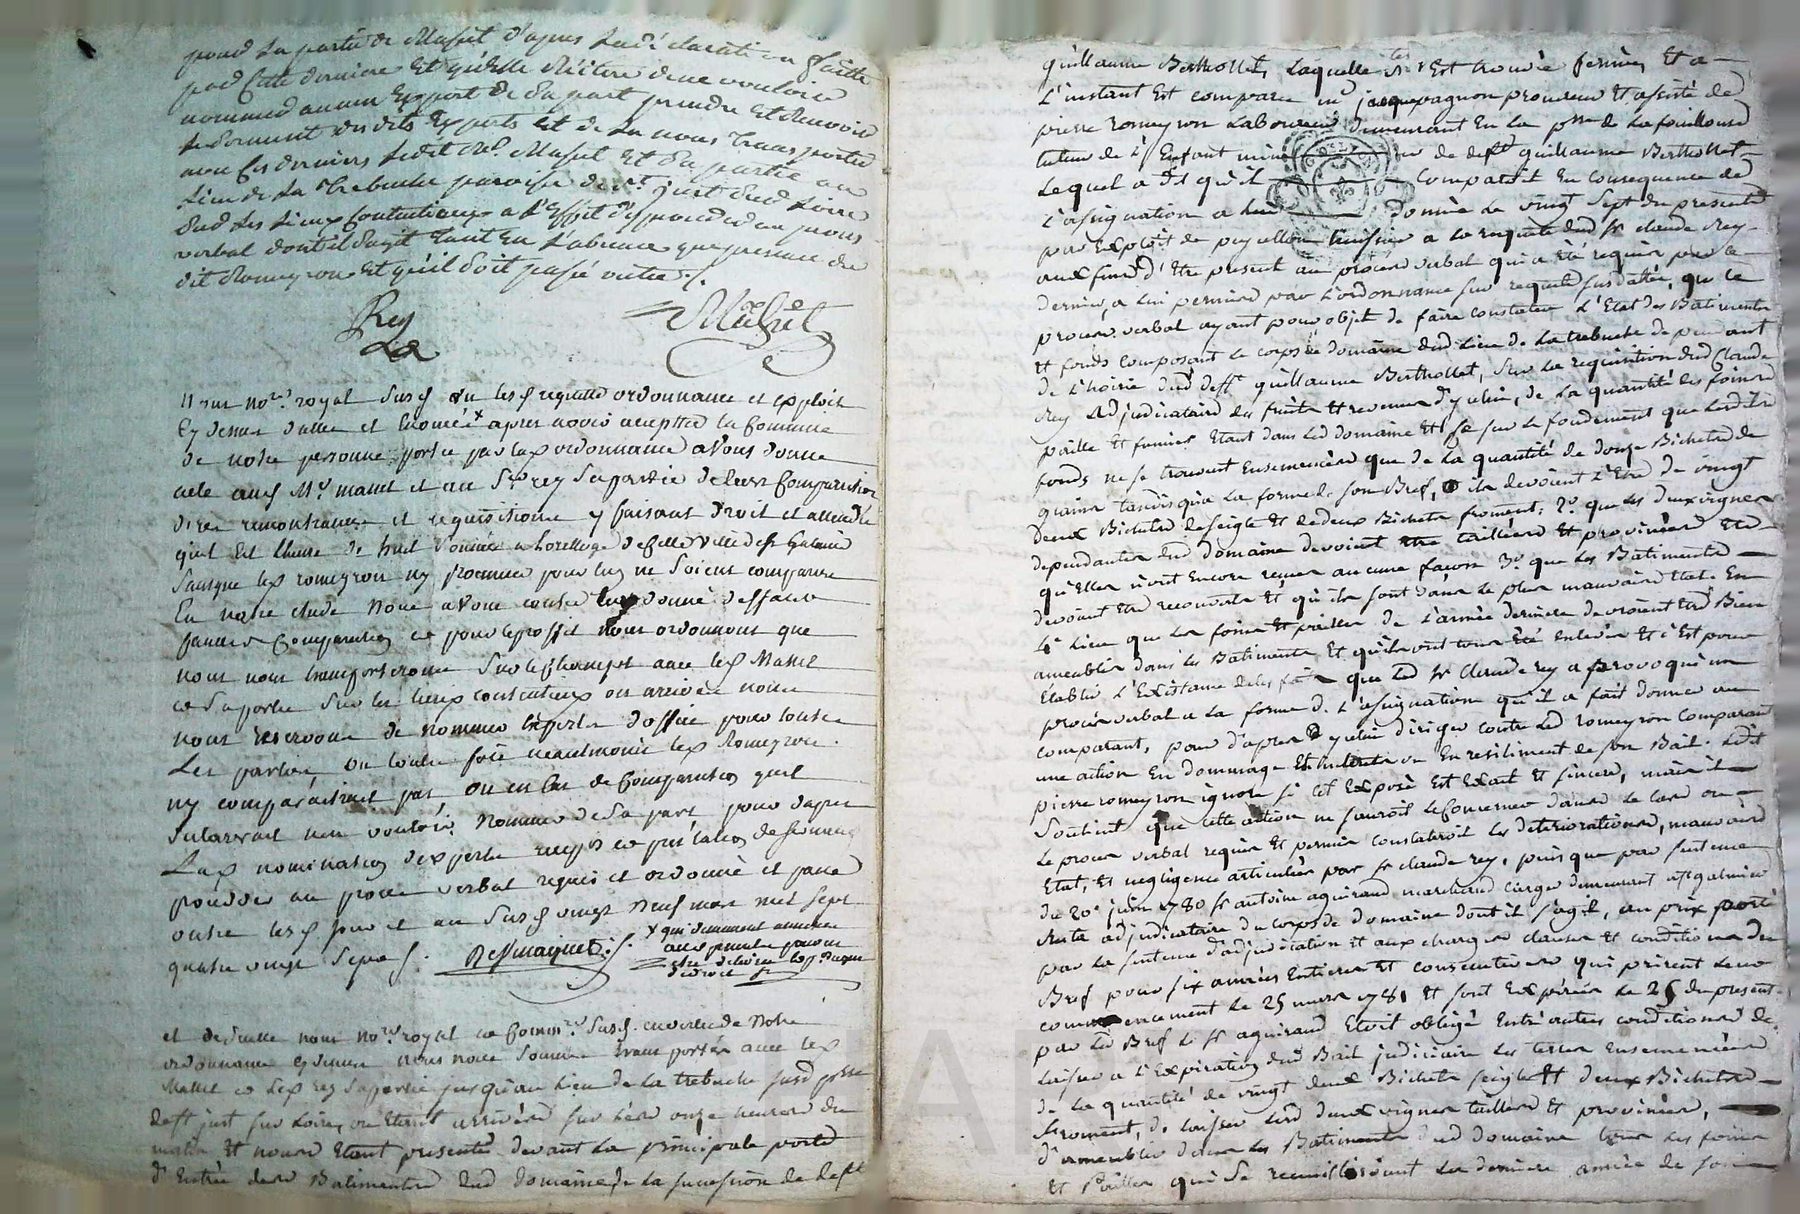 pour la partie de Masuel d'après la déclaration faitte
par cette derniere et qu'elle déclare de ne vouloir
nommer aucun expert de sa part prendre et recevoir
le serment desdits experts et de la nous transporter
avec ces derniers ledit Me. Masuel et sa partie au
lieu de la Trebuche paroisse de st just sur Loire
sur les lieux contentieux a l'effet d'y proceder au procès
verbal dont il s'agit tant en l'absence que presence du
dit Romeyron et qu'il soit passé outre ./.
Rey
Masuel
Nous nore. royal susd vu lesd requette ordonnance et exploit
cy dessus dattés et enoncés x apres avoir accepté la commission
de notre personne portée par lad ordonnance avons donné
acte aud Me masuel et au sr rey sa partie de leurs comparution
dires remontrances et requisitions y faisant droit et attendu
qu'il est l'heure de huit sonnée a horelloge de cette ville de st Galmier
sans que led romeyron ny procureur pour luy ne soient comparus
en notre etude nous avons contre luy donné deffaut
faute de comparution et pour le proffit nous ordonnons que
nous nous transporterons sur le champ avec led Masuel
et sa partie sur les lieux contentieux ou arrivés nous
nous reservons de nommer experts d'office pour toutes
les parties, ou contre soit neanmoins led Romeyron
ny comparaitrait pas ou en cas de comparution qu'il
declarerait n'en vouloir nommer de sa part pour d'apres
lad nomination d'experts reçus et prestation de serment
proceder au procès verbal requis et ordonné et passé
outre lesd jour et an susd vingt neuf mars mil sept
quatre vingt sept ./.
x qui demeurent annexées
aux presentes pour
y etre
Desmaques
et de suitte nous nore royal et commre susd. en vertu de notre
ordonnance cy dessus nous nous sommes transportés avec led
Masuel et led rey sa partie jusqu'au lieu de la trebuche susd psse
de st just sur Loire, ou etant arrivés sur les onze heures du
matin et nous etant presentés devant la principale porte
d'entrée des Batiments dud domaine de la succession de deft
guillaume Berthollet, laquelle s'est trouvée fermée, et a
l'instant est comparu me jacque pagnon procureur et assisté de
pierre romeyron Laboureur demeurant en la psse de la fouillouse
tuteur de l'Enfant mineur de defft guillaume Berthollet
Lequel a dit qu'il comparoit en consequence de
l'assignation a lui donnée le vingt sept du present
par exploit de huissier a la requete dud sr claude Rey
aux fins d'etre present au procès verbal qui a été requis par ce
dernier, a lui permis par l'ordonnance sur requete susdattée, que ce
procès verbal ayant pour objet de faire constater l'Etat des Batiments
et fonds composant le corps de domaine dud lieu de la trebuche dependant
de l'hoirie dud defft guillaume Berthollet, sur la requisition dud claude
rey adjudicataire des fruits et revenus d'y celui, de la quantité des foins
paille et fumier etant dans led domaine et sur le fondement que lesdits
fonds ne se trouvent ensemencés que de la quantité de douze Bichets de
grains tandis qu'a la forme de son Bref, ils devoient l'être de vingt
deux Bichets de seigle et de deux Bichets froment; 2º. que les deux vignes
dependantes dud domaine devoient etre taillées et provinées et
qu'elles n'ont encore reçu aucune façon 3º. que les Batiments
devoient etre recouverts et qu'ils sont dans le plus mauvais etat. En
4e lieu que les foins et pailles de l'année derniere devoient etre bien
ameublés dans les Batiments et qu'ils ont tous été enlevés et c'est pour
etablir l'existance de ces faits que led sr claude rey a provoqué un
procès verbal a la forme de l'assignation qu'il a fait donner au
comparant, pour d'après y celui diriger contre led romeyron comparant
une action en dommage et interets ou en resiliment de son Bail. Ledit
pierre romeyron ignore si cet exposé est exact et sincere, mais il
soutient que cette action ne sauroit le concerner dans le cas ou
le procès verbal requis et permis constateroit les deteriorations, mauvais
etat, et negligence articulés par sr claude rey, puisque par sentence
du 20e juin 1780 sr antoine aguiraud marchand cirger demeurant a st galmier
resta adjudicataire du corps de domaine dont il s'agit, au prix porté
par la sentence d'adjudication et aux charges clauses et conditions du
Bref pour six années entieres et consecutives qui prirent leur
commencement le 25 mars 1781 et sont expirées le 25 du present.
par led Bref le sr aguiraud etoit obligé entr'autres conditions de
laisser a l'Expiration dud Bail judiciaire les terres ensemencées
de la quantité de vingt deux Bichets seigle et deux Bichets
froment, de laisser lesd deux vignes taillées et provinées,
d'ameubler dans les Batiments dud domaine tous les foins
et pailles qui se recueilliroient la derniere année de son